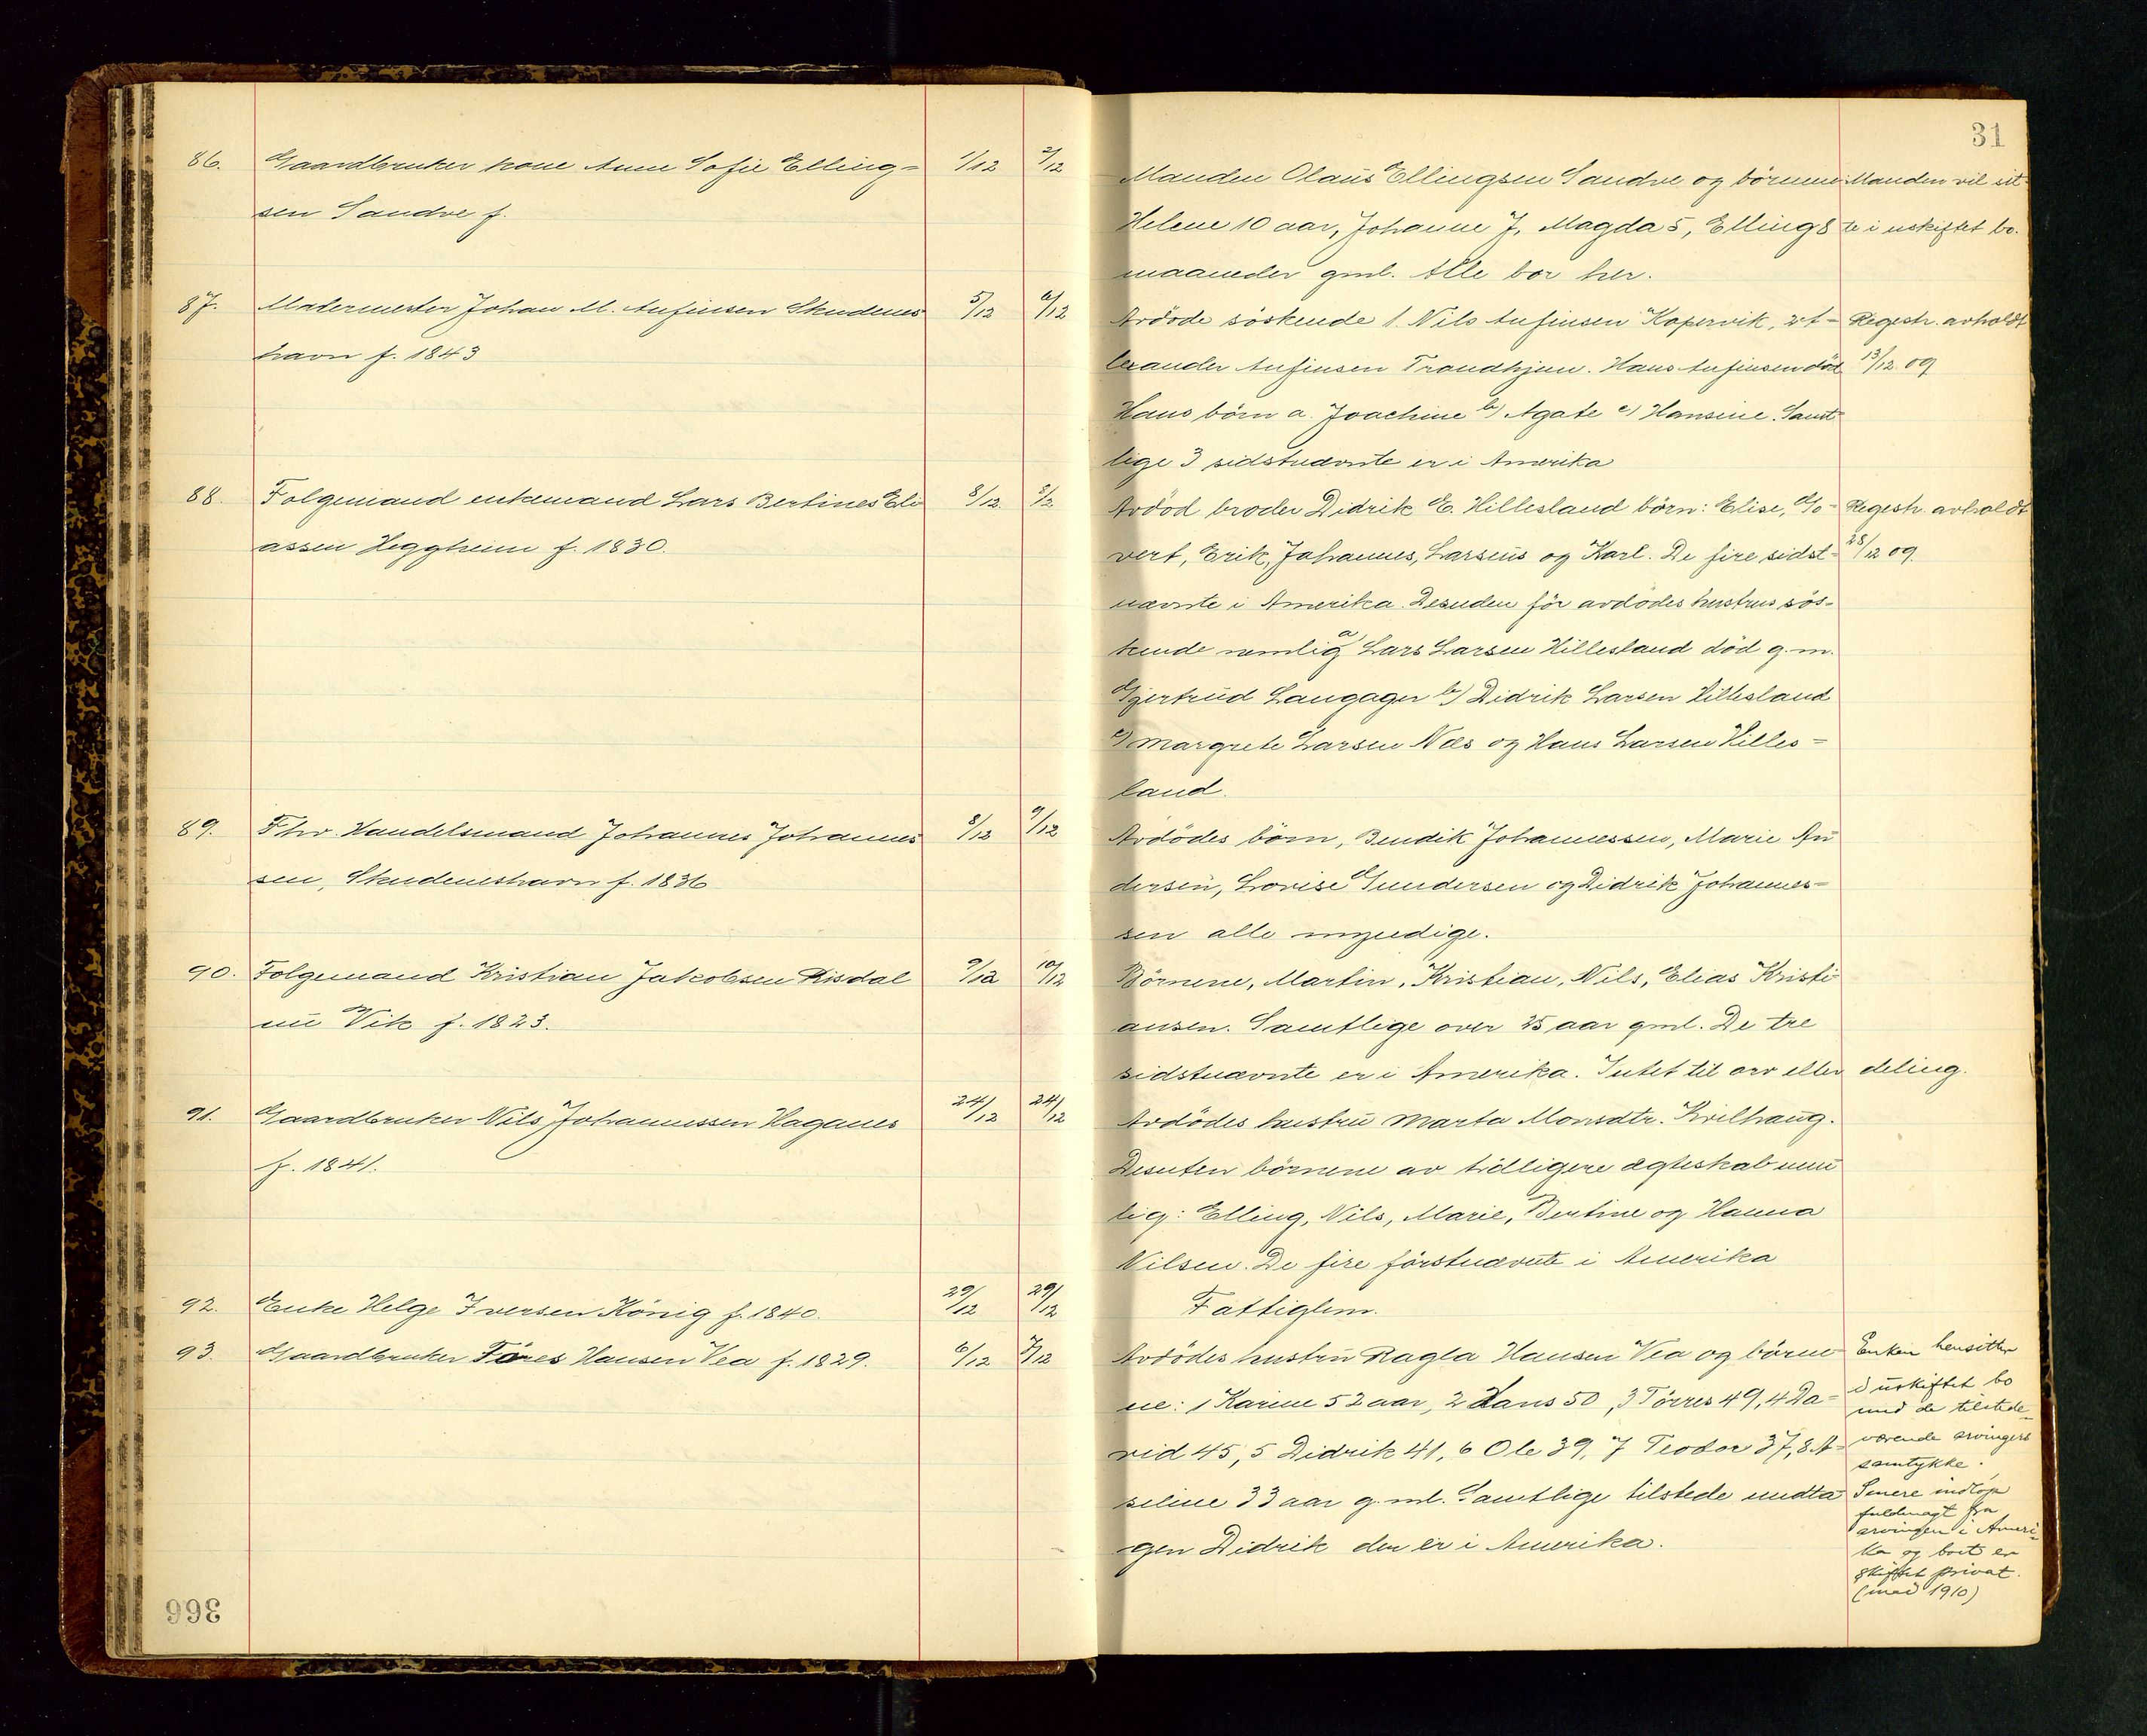 31
86. Gaardbruker kone Anne Sofie Elling=
sen Sandve f.
1/12 2/12
Manden Olaus Ellingsen Sandve og börnene
Helene 10 aar, Johanne 7, Magda 5, Elling 8
maaneder gml. Alle bor her.
Manden vil sit
te i uskiftet bo.
87. Malermester Johan M. Anfinsen Skudenes
havn f. 1843
5/12 6/12
Avdöde söskende 1. Nils Anfinsen Kopervik, 2 A=
lexander Anfinsen Trondhjem. Hans Anfinsen död
Hans börn a. Joachine b) Agate c) Hansine. Samt=
lige 3 sidstnævnte er i Amerika
Regestr. avholdt
13/12 09
88. Folgemand enkemand Lars Bertines Eli
assen Heggheim f. 1830.
8/12 8/12
Avdöd broder Didrik E. Hillesland börn: Elise, Go=
vert, Erik, Johannes, Larsens og Karl. De fire sidst=
nævnte i Amerika. Desuden för avdödes hustrus sös=
kende nemlig a Lars Larsen Hillesland död g. m.
Gjertrud Langager b) Didrik Larsen Hillesland
c) Margrete Larsen Næs og Hans Larsen Hilles=
land.
Regestr. avholdt
28/12 09.
89. Fhv. Handelsmand Johannes Johannes
sen, Skudeneshavn f. 1836
8/12 9/12
Avdödes börn, Bendik Johannessen, Marie An
dersen, Lovise Gundersen og Didrik Johannes=
sen alle myndige.
90. Folgemand Kristian Jakobsen Risdal
nu Vik f. 1823.
9/12 10/12
Börnene, Martin, Kristian, Nils, Elias Kristi
ansen. Samtlige over 25 aar gml. De tre
sidstnævnte er i Amerika. Intet til arv eller deling.
91. Gaardbruker Nils Johannessen Haganes
f. 1841.
24/12 24/12
Avdödes hustru Marta Monsdtr. Kvilhaug.
Desuten börnene av tidligere ægteskab nem
lig: Elling, Nils, Marie, Bertine og Hanna
Nilsen. De fire förstnævnte i Amerika
92. Enke Helge Iversen König f. 1840.
29/12 29/12
Fattiglem.
93. Gaardbruker Töres Hansen Vea f. 1829.
6/12 7/12
Avdödes hustru Ragla Hansen Vea og börne
ne: 1 Karine 52 aar, 2 Hans 50, 3 Törres 49, 4 Da=
vid 45, 5 Didrik 41, 6 Ole 39, 7 Teodor 37, 8 A=
seline 33 aar g. ml. Samtlige tilstede undta
gen Didrik der er i Amerika.
Enken hensitter
i uskiftet bo
med de tilstede=
værende arvingers
samtykke.
Senere indløp
fuldmagt fra
arvingen i Ameri=
ka og boet er
skiftet privat.
(mai 1910)
366